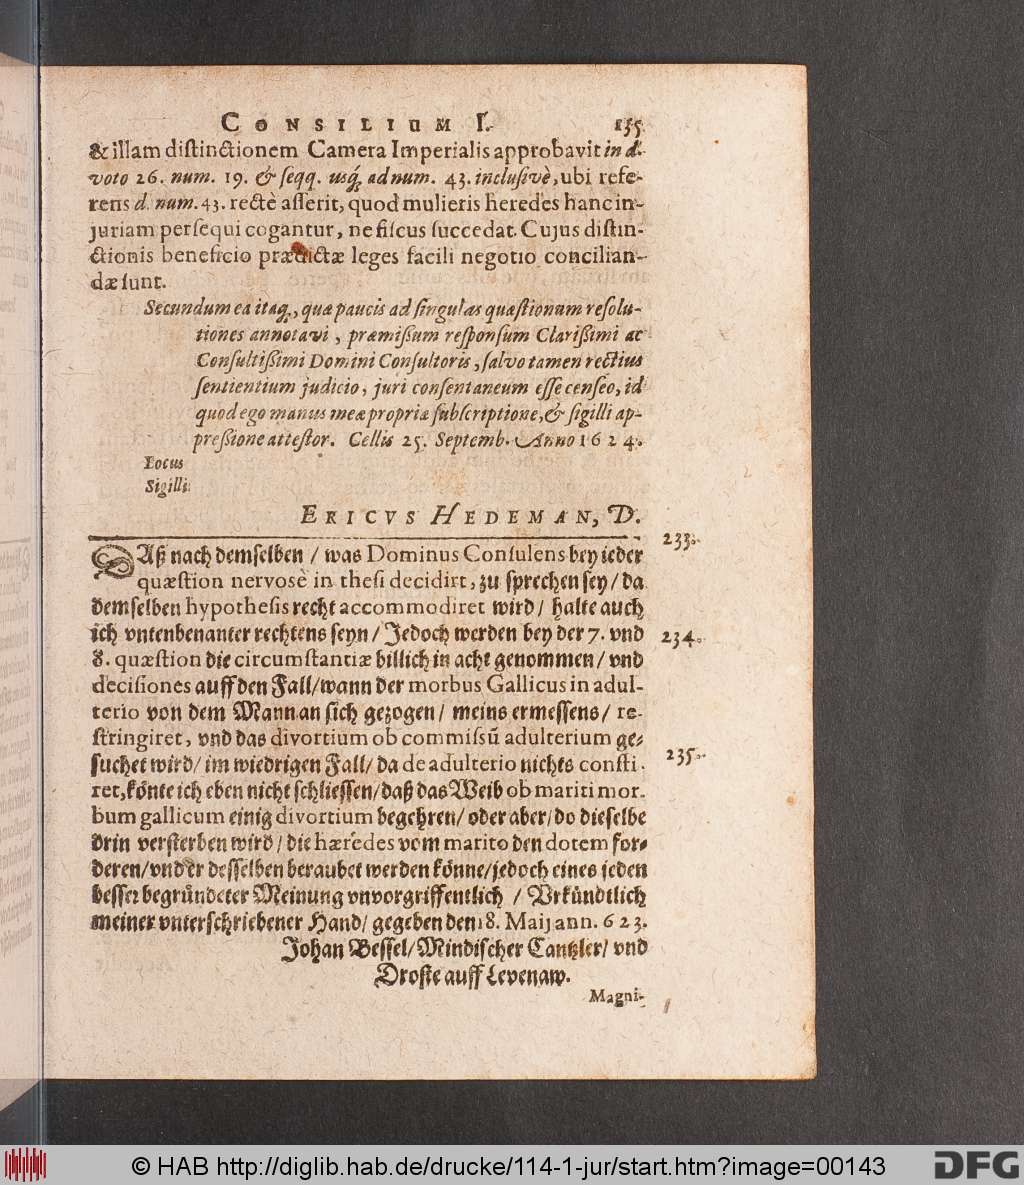 CONSILIUM I. 135
& illam distinctionem Camera Imperialis approbavit in d.
voto 26. num. 19. & seqq. usq; ad num. 43. inclusivè, ubi refe-
rens d. num. 43. rectè asserit, quod mulieris heredes hanc in-
juriam persequi cogantur, ne fiscus succedat. Cujus distin-
ctionis beneficio prædictæ leges facili negotio concilian-
dæ sunt.
Secundum ea itaq;, quæ paucis ad singulas quæstionum resolu-
tiones annotavi, præmissum responsum Clarißimi ac
Consultißimi Domini Consultoris, salvo tamen rectius
sentientium judicio, juri consentaneum esse censeo, id
quod ego manus meæ propriæ subscriptione, & sigilli ap-
preßione attestor. Cellis 25. Septemb. Anno 1624.
Locus
Sigilli.
ERICVS HEDEMAN, D.
233.
DAß nach demselben / was Dominus Consulens bey ieder
quæstion nervosè in thesi decidirt, zu sprechen sey / da
demselben hypothesis recht accommodiret wird / halte auch
ich vntenbenanter rechtens seyn / Jedoch werden bey der 7. vnd
234.
8. quæstion die circumstantiæ billich in acht genommen / vnd
decisiones auff den Fall / wann der morbus Gallicus in adul-
terio von dem Mann an sich gezogen / meins ermessens / re-
stringiret, vnd das divortium ob commissũ adulterium ge-
235.
suchet wird / im wiedrigen Fall / da de adulterio nichts consti-
ret, könte ich eben nicht schliessen / daß das Weib ob mariti mor-
bum gallicum einig divortium begehren / oder aber / do dieselbe
drin versterben wird / die hæredes vom marito den dotem for-
deren / vnd er desselben beraubet werden könne / jedoch eines jeden
besser begründeter Meinung vnvorgriffentlich / Vrkündtlich
meiner vnterschriebener Hand / gegeben den 18. Maij ann. 623.
Johan Bessel / Mindischer Cantzler / vnd
Droste auff Levenaw.
Magni-
© HAB http://diglib.hab.de/drucke/114-1-jur/start.htm?image=00143
DFG